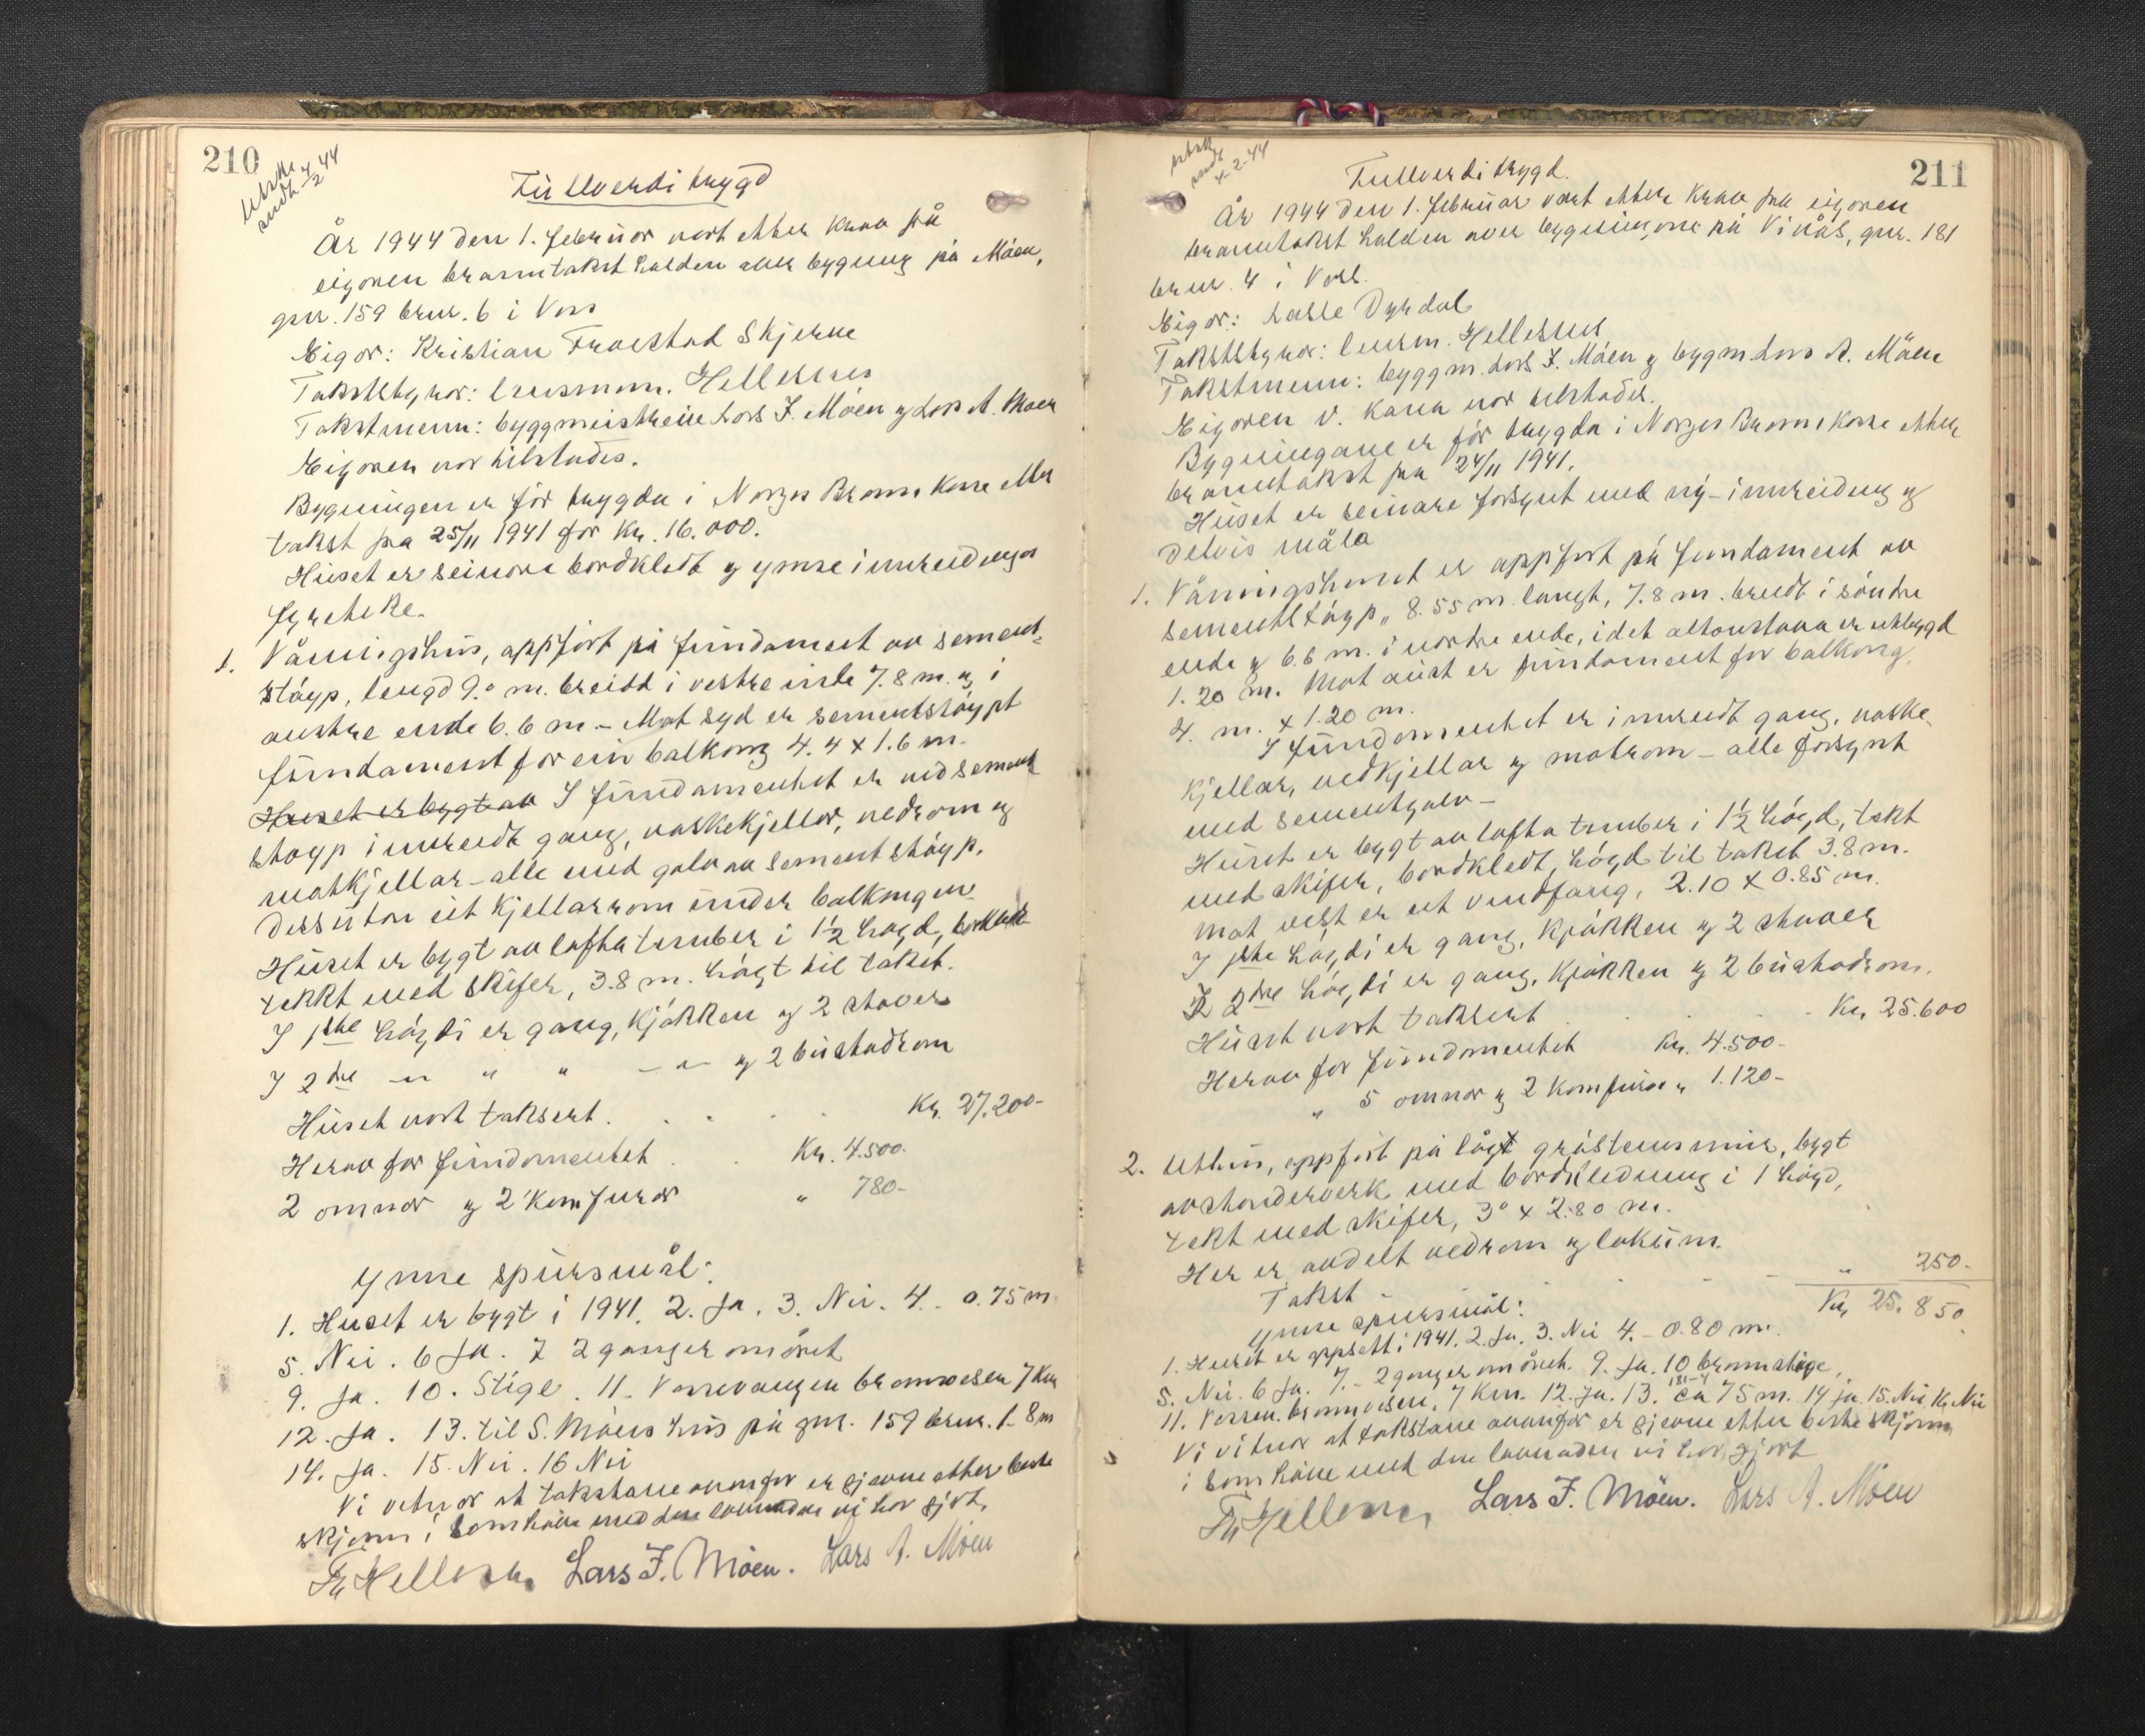 210
Utskr.
sendt 4/2 44
Fullverdi trygd
År 1944 den 1. februar vart etter krav frå
eigaren branntakst halden over bygning på Móen,
gnr. 159 brnr. 6 i Voss
Eigar: Kristian Fraestad Skjerve
Takststyrar: lensmann. Hellesnes
Takstmenn: byggmeistrane Lars J. Móen og Lars A. Móen
Eigaren var tilstades.
Bygningen er før trygda i Norges Brannkasse etter
takst fra 25/11 1941 for Kr. 16.000.
Huset er seinare bordkledt og ymse innreidingar
fyreteke.
1. Våningshus, oppført på fundament av sement-
støyp, lengd 9.0 m. breidd i vestre ende 7.8 m. og i
austre ende 6.6 m - Mot syd er sementstøypt
fundament for ein balkong 4.4 x 1.6 m.
Huset er bygt av I fundamentet er ved sement
støyp innreidt gang, vaskekjellar, vedrom og
matkjellar - alle med golv av sementstøyp.
Dessutan eit kjellarrom under balkongen.
Huset er bygt av lafta tømber i 1½ høgd, bordkledt
tekkt med skifer, 3.8 m. høgt til taket.
I 1ste høgdi er gang, kjøkken og 2 stover
I 2dre -"- " " -"- og 2 bustadrom
Huset vart taksert . . . . Kr. 27.200-
Herav for fundamentet . . Kr. 4.500.
2 omnar og 2 komfurar " 780-
Ymse spursmål:
1. Huset er bygt i 1941. 2. Ja. 3. Nei. 4. - 0.75 m.
5. Nei. 6 Ja. 7 2 ganger om året
9. Ja. 10. Stige. 11. Vossevangen brannvesen 7 km
12. Ja. 13. til S. Móens hus på gnr. 159 brnr. 1 - 8 m
14. Ja. 15. Nei. 16 Nei
Vi vitnar at takstane ovanfor er gjevne etter beste
skjønn i samhøve med den lovnaden vi har gjort.
Fr. Hellesnes Lars J. Móen. Lars A. Móen
211
Utskr.
sendt
4-2-44
Fullverdi trygd.
År 1944 den 1. februar vart etter krav fra eigaren
branntakst halden over bygningane på Vinås, gnr. 181
brnr. 4 i Voss.
Eigar: Lasse Dyrdal
Takststyrar: lensm. Hellesnes
Takstmenn: byggm. Lars J. Móen og bygm. Lars A. Móen
Eigaren v. kona var tilstades.
Bygningane er før trygda i Norges Brannkasse etter
branntakst fra 24/11 1941.
Huset er seinare forsynt med ny-innreiding og
delvis måla
1. Våningshuset er oppført på fundament av
sementstøyp, 8.55 m. langt, 7.8 m. breidt i søndre
ende og 6.6 m. i nordre ende, idet altanstova er utbygd
1.20 m. Mot aust er fundament for balkong,
4. m. x 1.20 m.
I fundamentet er innreidt gang, vaske-
kjellar, vedkjellar og matrom - alle forsynt
med sementgolv -
Huset er bygt av lafta tømber i 1½ høgd, tekt
med skifer, bordkledt, høgd til taket 3.8 m.
Mot vest er eit vindfang, 2.10 x 0.85 m.
I 1ste høgdi er gang, kjøkken og 2 stover
I 2dre høgdi er gang, kjøkken og 2 bustadrom.
Huset vart taksert . . . . Kr. 25.600
Herav for fundamentet Kr. 4.500-
" 5 omnar og 2 komfurar " 1.120-
2. Uthus, oppført på lågt gråsteinsmur, bygt
av stenderverk med bordkledning i 1 høgd,
tekt med skifer, 3.0 x 2.80 m.
Her er avdelt vedrom og lokum.
Takst . . . . . " 250-
Kr. 25.850
Ymse spursmål:
1. Huset er oppsett i 1941. 2. Ja. 3. Nei 4. - 0.80 m.
5. Nei. 6 Ja. 7. - 2 ganger om året. 9. Ja. 10 brannstige,
11. Vossev. brannvesen, 7 km. 12. Ja. 13. 181-4 ca 75 m. 14 ja. 15. Nei. 16 Nei
Vi vitnar at takstane ovanfor er gjevne etter beste skjønn
i samhøve med den lovnaden vi har gjort
Fr. Hellesnes Lars J. Móen. Lars A. Móen